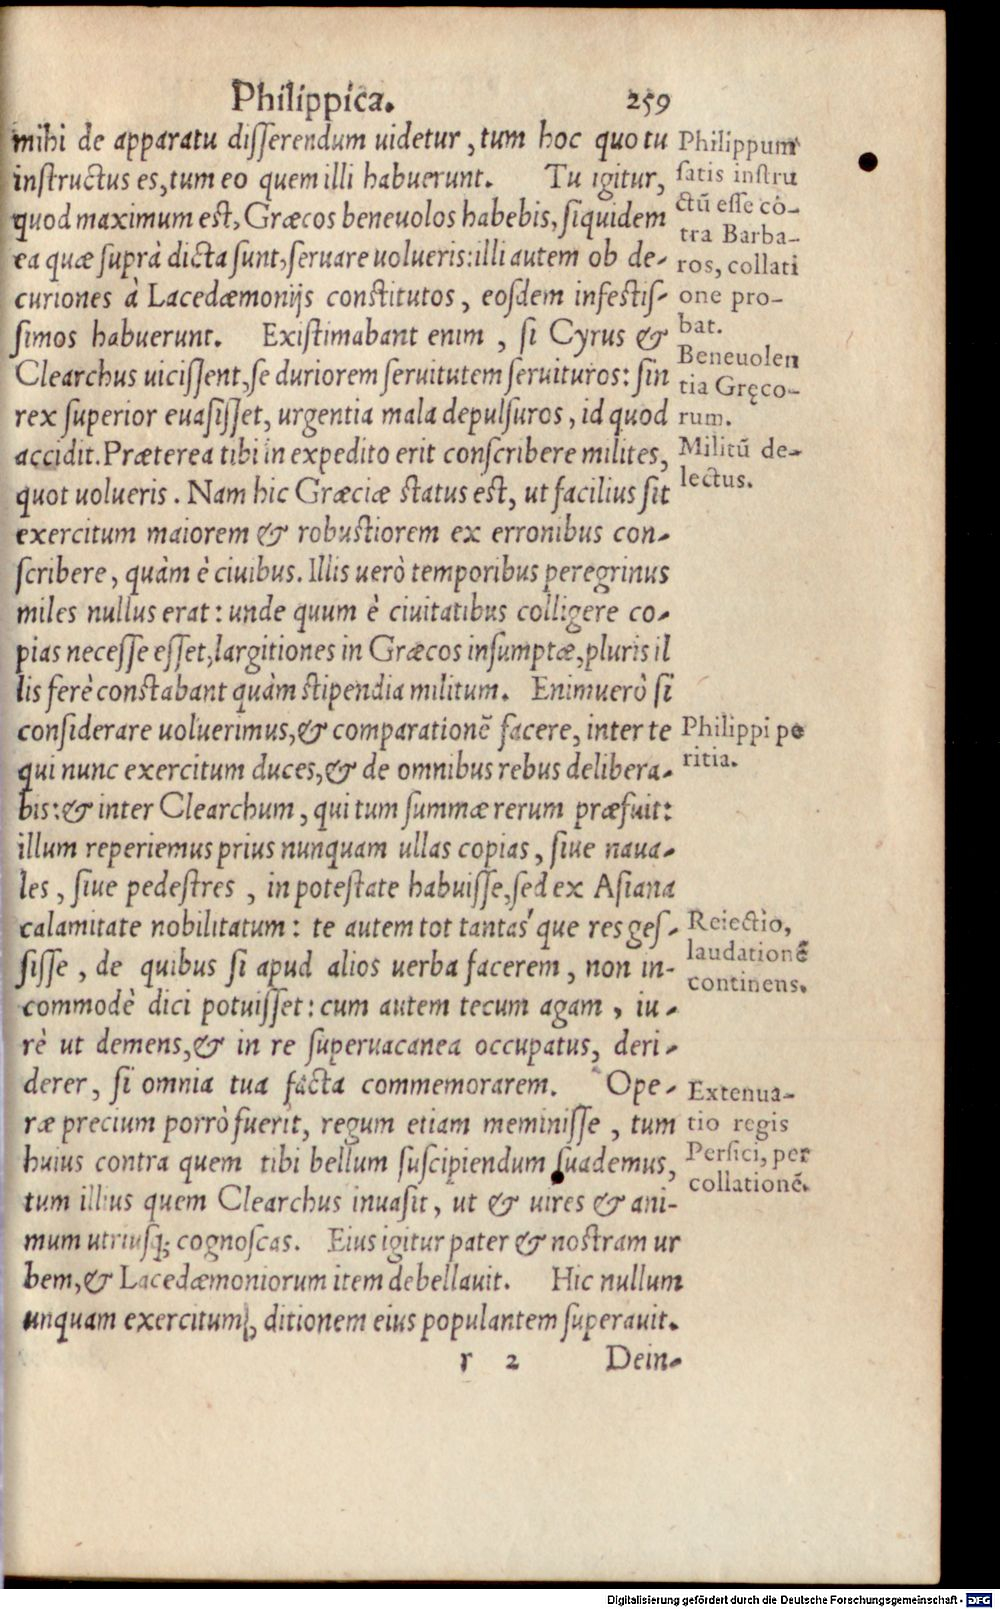 Philippica. 259
mihi de apparatu disserendum uidetur, tum hoc quo tu
instructus es, tum eo quem illi habuerunt. Tu igitur,
quod maximum est, Græcos beneuolos habebis, siquidem
ea quæ suprà dicta sunt, seruare uolueris: illi autem ob de-
curiones à Lacedæmonijs constitutos, eosdem infestis-
simos habuerunt. Existimabant enim, si Cyrus &
Clearchus uicissent, se duriorem seruitutem seruituros: sin
rex superior euasisset, urgentia mala depulsuros, id quod
accidit. Præterea tibi in expedito erit conscribere milites,
quot uolueris. Nam hic Græciæ status est, ut facilius sit
exercitum maiorem & robustiorem ex erronibus con-
scribere, quàm è ciuibus. Illis uerò temporibus peregrinus
miles nullus erat: unde quum è ciuitatibus colligere co-
pias necesse esset, largitiones in Græcos insumptæ, pluris il
lis ferè constabant quàm stipendia militum. Enimuerò si
considerare uoluerimus, & comparationē facere, inter te
qui nunc exercitum duces, & de omnibus rebus delibera-
bis: & inter Clearchum, qui tum summæ rerum præfuit:
illum reperiemus prius nunquam ullas copias, siue naua-
les, siue pedestres, in potestate habuisse, sed ex Asiana
calamitate nobilitatum: te autem tot tantas'que res ges-
sisse, de quibus si apud alios uerba facerem, non in-
commodè dici potuisset: cum autem tecum agam, iu-
rè ut demens, & in re superuacanea occupatus, deri-
derer, si omnia tua facta commemorarem. Ope-
ræ precium porrò fuerit, regum etiam meminisse, tum
huius contra quem tibi bellum suscipiendum suademus,
tum illius quem Clearchus inuasit, ut & uires & ani-
mum utriusq; cognoscas. Eius igitur pater & nostram ur
bem, & Lacedæmoniorum item debellauit. Hic nullum
unquam exercitum, ditionem eius populantem superauit.
r 2 Dein-
Philippum
satis instru
ctū esse cō-
tra Barba-
ros, collati
one pro-
bat.
Beneuolen
tia Gręco-
rum.
Militū de-
lectus.
Philippi pe
ritia.
Reiectio,
laudationē
continens.
Extenua-
tio regis
Persici, per
collationē.
Digitalisierung gefördert durch die Deutsche Forschungsgemeinschaft - DFG